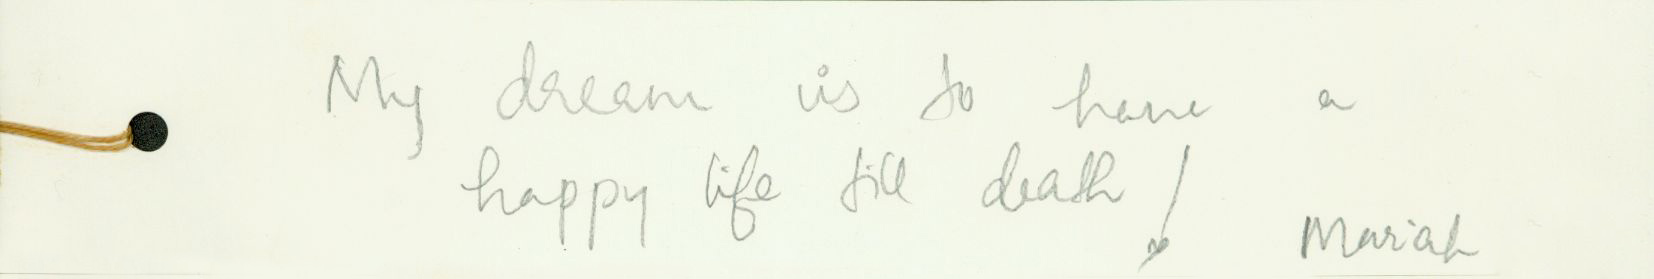 My dream is to have a
happy life till death!
Mariah